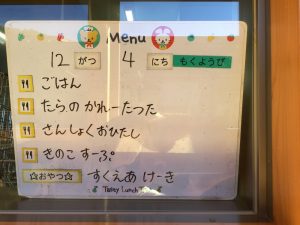 Menu
12 がつ 4 にち もくようび
ごはん
たらの かれーたつた
さんしょくおひたし
きのこ すーぷ
☆おやつ☆ すくえあ けーき
Tasty Lunch Time